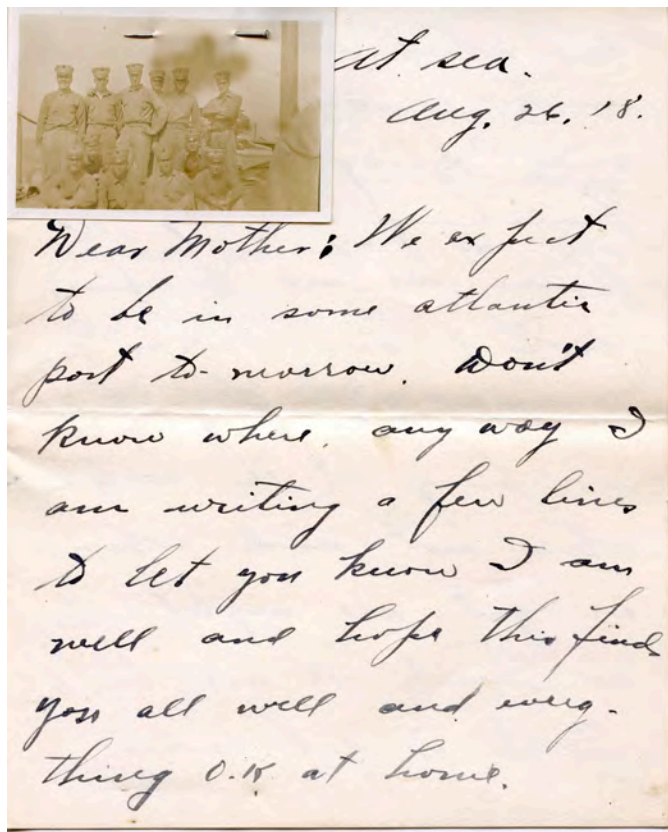 at sea.
Aug. 26. '18.
Dear Mother: We expect
to be in some atlantic
port to-morrow. Don't
know where. any way I
am writing a few lines
to let you know I am
well and hope this finds
you all well and every-
thing O.K. at home.